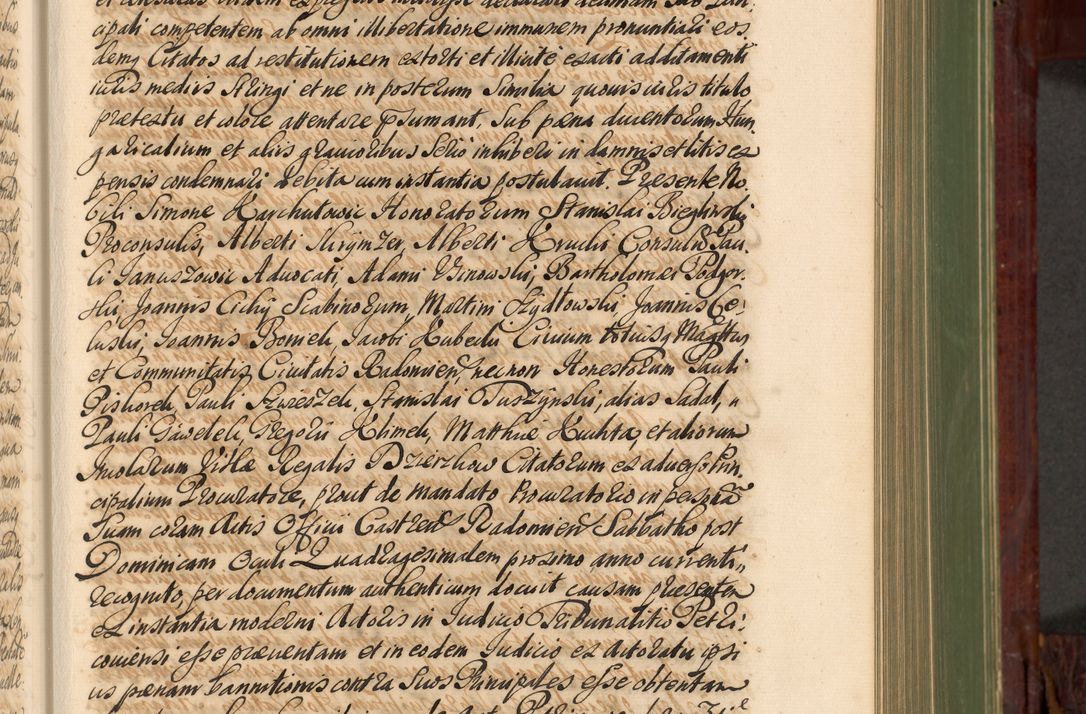 cipali competentem ab omni illibertatione immunem pronuntiari eos
demq Citatos ad restitutionem extorti et illicitè exacti additamenti
iuris mediis stringi et ne in posterum similia quouis iuris titulo
prætextu et colore attentare p̱sumant, sub pæna ducentorum Hun,
garicalium et aliis grauioribus serio inhiberi in damnis et litis ex
pensis condemnari debita cum instantia postulauit. Præsente No,
bili Simone Karchutowic Honoratorum Stanislai Biegłowski
Proconsulis, Alberti Nirymzer, Alberti Kruchi Consulū Pau,
li Januszowic Aduocati, Adami Winowski, Bartholomei Podgor,
ski, Joannis Cichy Scabinorum, Martini Szydłowski, Joannis Ce,
luski, Joannis Bomek, Jacobi Kubecki Ciuium totiusq Mgttus
et Communitatis Ciuitatis Radomien, necnon Honestorum Pauli
Piskorek, Pauli Szweszek, Stanislai Duszynski, alias Sadał,
Pauli Gawetek, Gregorii Klimek, Matthiæ Kuchta, et aliorum
Incolarum Villæ Regalis Dzierzkow Citatorum ex aduerso Prin,
cipalium Procuratore, prout de mandato Procuratorio in personā
suam coram Actis Officii Castren Radomien Sabbatho post
Dominicam Oculi Quadragesimalem proximo anno currenti,
recognito, per documentum authenticum docuit causam præsentem
ex instantia moderni Actoris in Judicio Tribunalitio Petri,
couiensi esse præuentam et in eodem Judicio ex actoratu ipsi
us pœnam bannitionis contra suos Principales esse obtentam